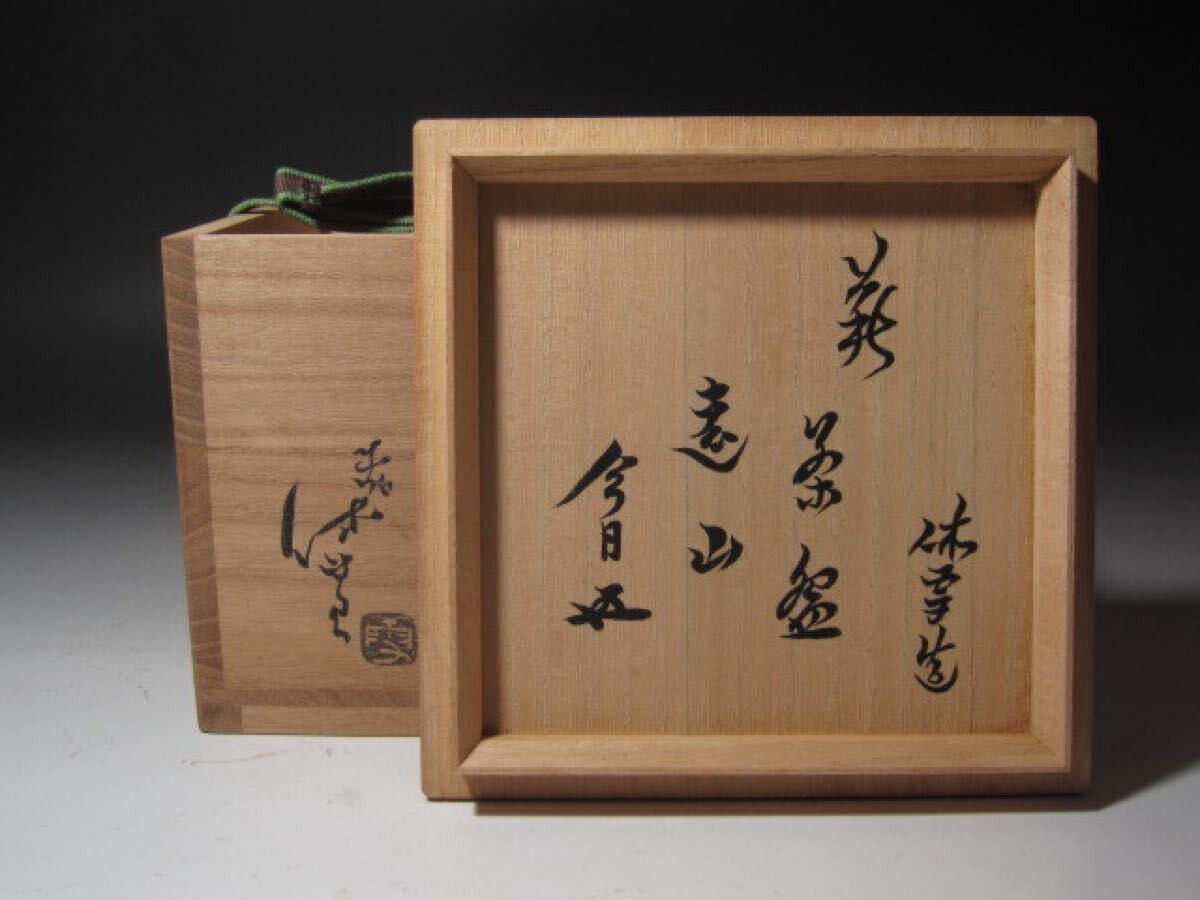 休雪造
萩
茶盌
遠山
今日
萩
休雪